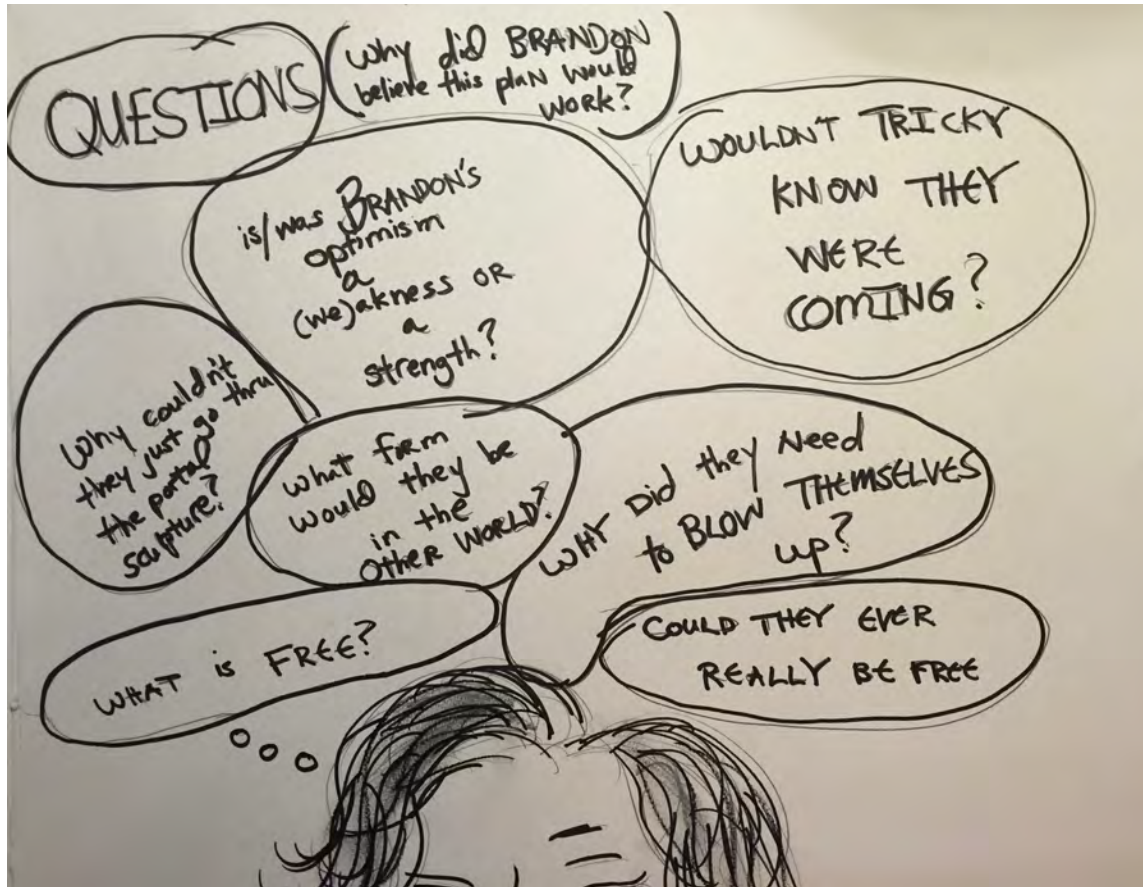 QUESTIONS
Why did BRANDON
believe this plan would
work?
is/was BRANDON'S
optimism
a
(we)akness OR
a
strength?
WOULDN'T TRICKY
KNOW THEY
WERE
COMING?
Why couldn't
they just go thru
the portal
sculpture?
What form
would they be
in the
Other World?
WHY DiD they Need
to BLOW THEMSELVES
up?
WHAT is FREE?
COULD THEY EVER
REALLY BE FREE